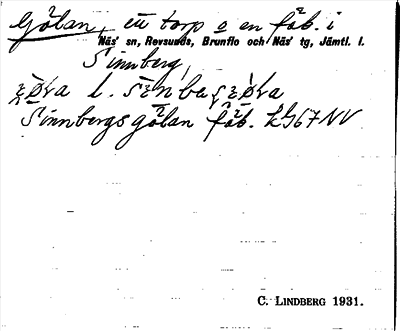 Gölan, ett torp o en fäb. i
Näs' sn, Revsunds, Brunflo och Näs' tg, Jämtl. l.
Sinnberg,
l.
Sinnbergsgölan fäb. LG67NV
C. LINDBERG 1931.